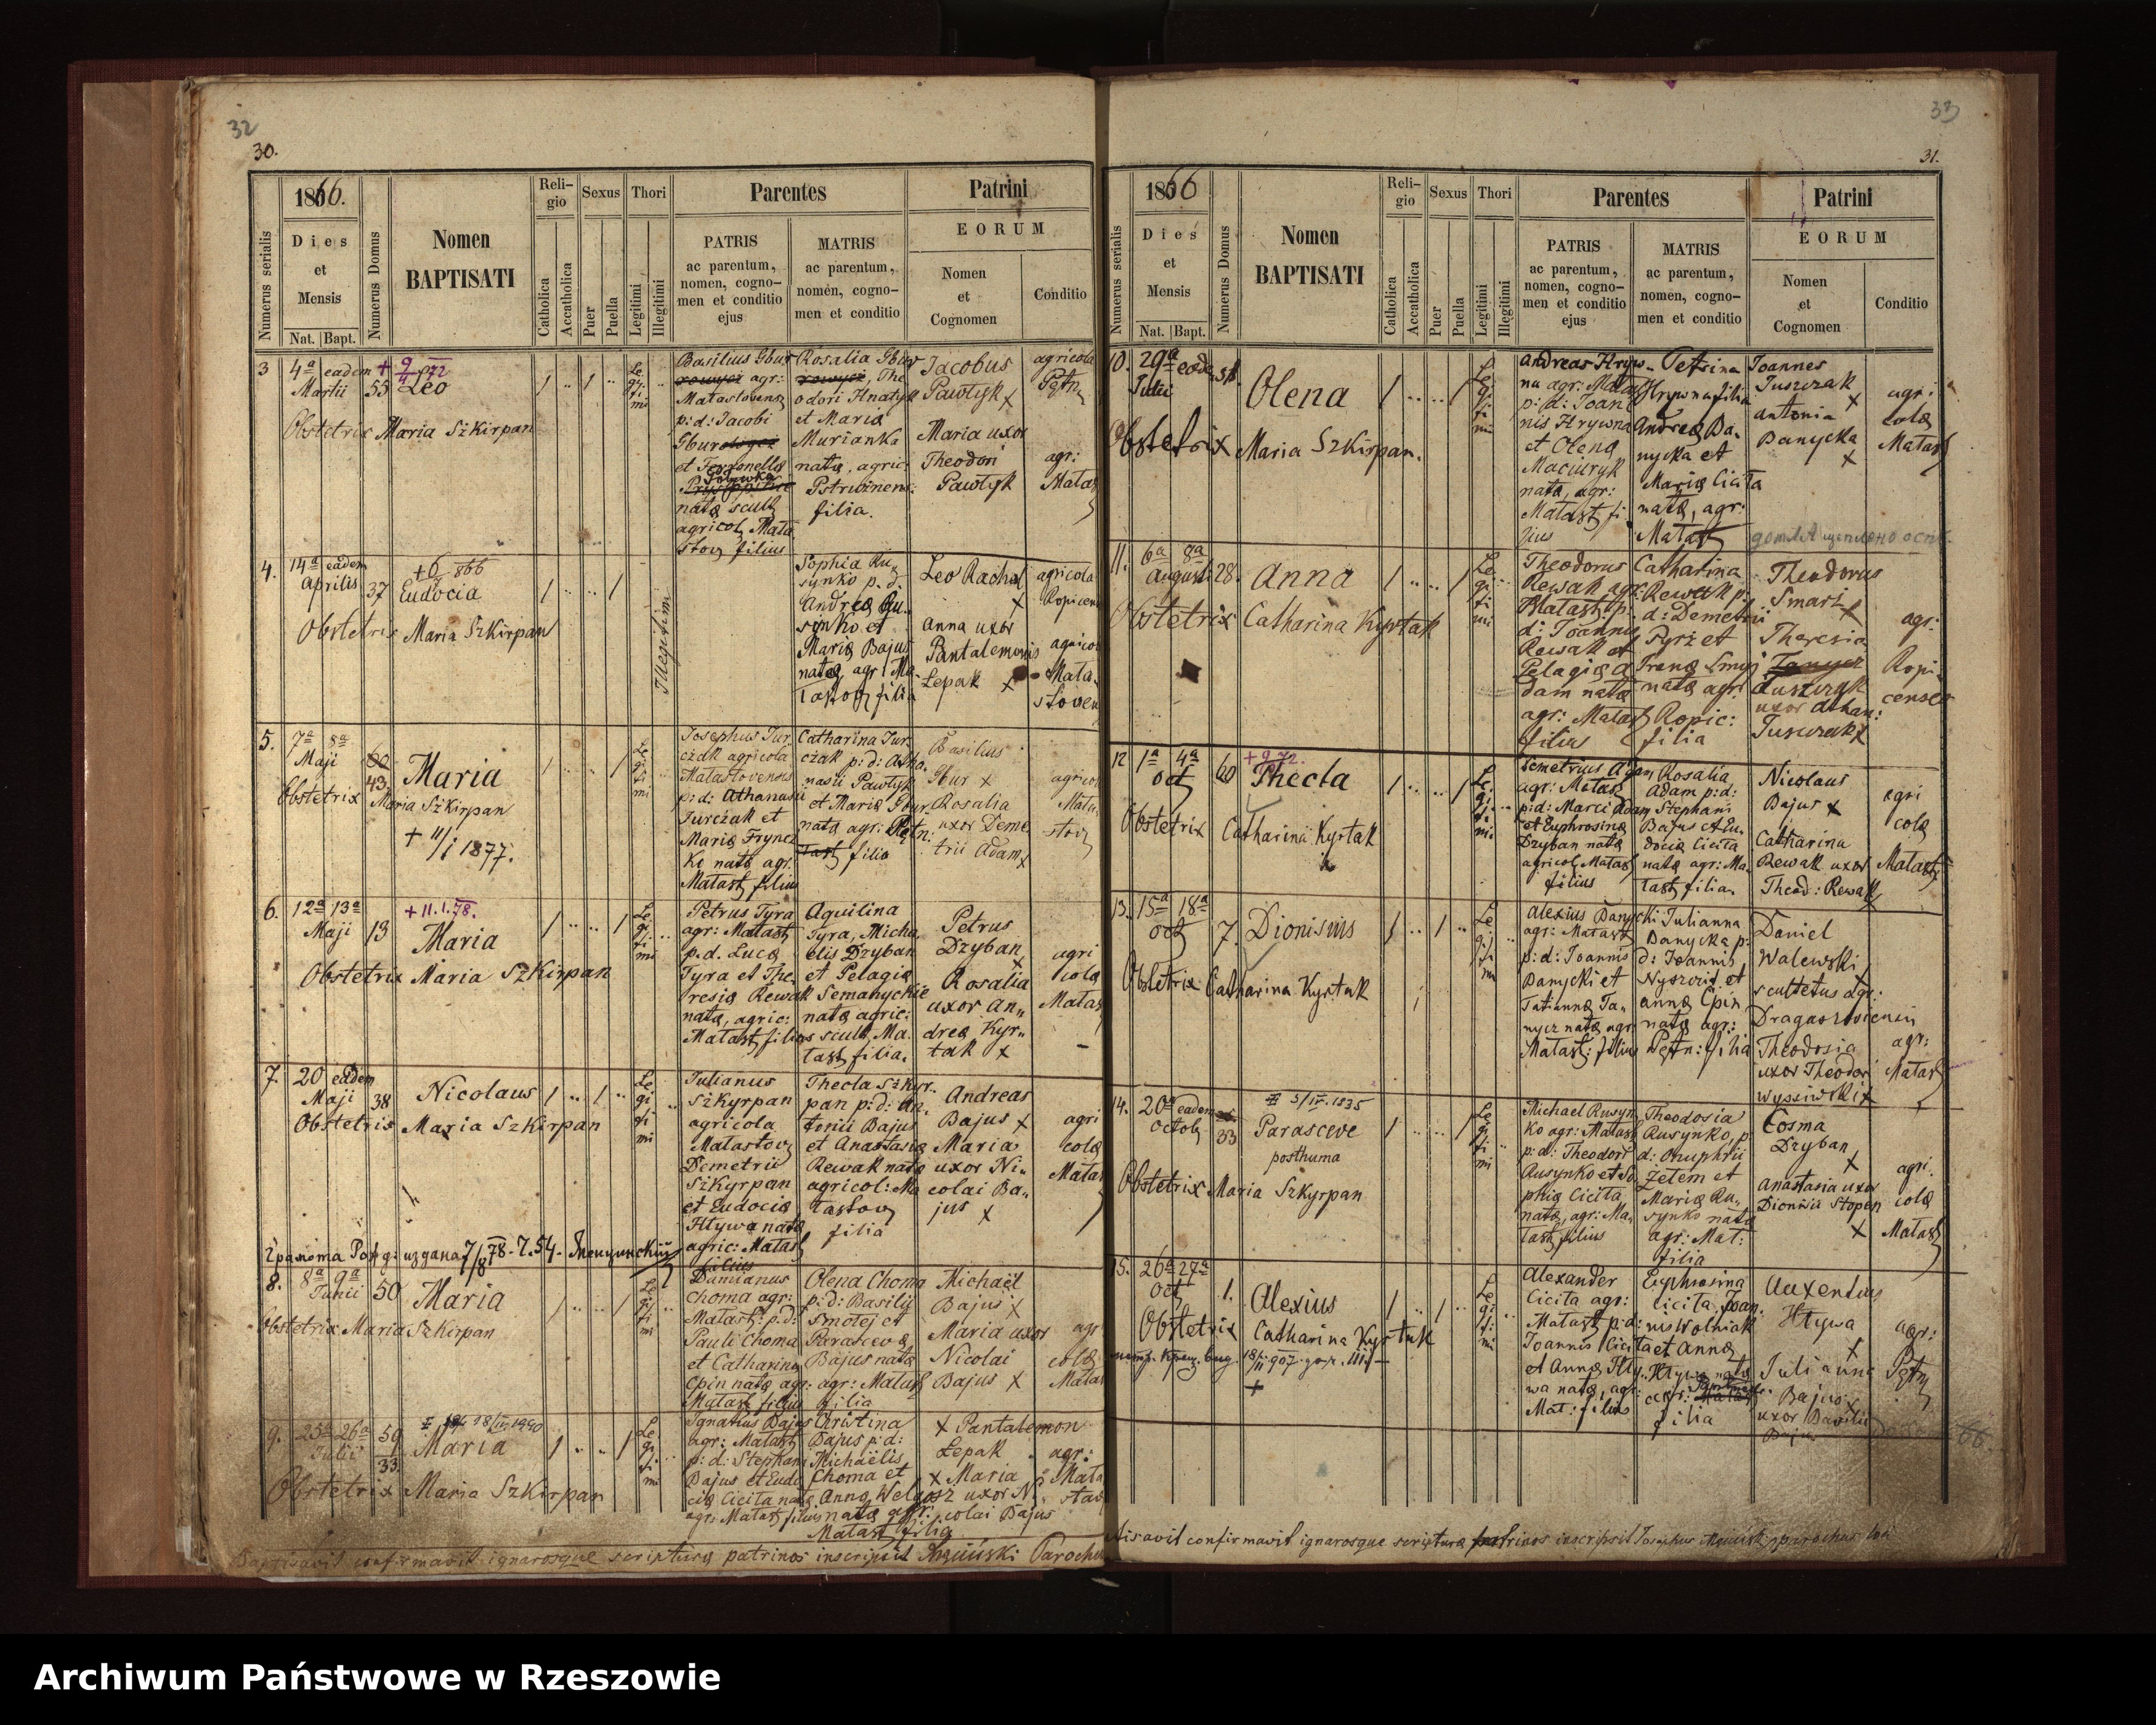 32
30.
1866.
Dies
et
Mensis
Nat. Bapt.
Numerus serialis
Numerus Domus
Nomen
BAPTISATI
Reli-
gio
Catholica
Accatholica
Sexus
Puer
Puella
Thori
Legitimi
Illegitimi
Parentes
PATRIS
ac parentum,
nomen, cogno-
men et conditio
ejus
MATRIS
ac parentum,
nomen, cogno-
men et conditio
Patrini
EORUM
Nomen
et
Cognomen
Conditio
3 4ª eadem
Martii 55 Leo
Obstetrix Maria Szkirpan
Le
gi
ti
mi
Basilius Gbur
agr:
p: d: Jacobi
natæ scult
agricol Mata
stov filius
Rosalia Gbur
odori Hnatyk
et Maria
Murianka
natæ, agric:
filia.
Jacobus
Pawlyk x
Maria uxor
Theodori
Pawlyk
agricola
Pętn
agr:
Matas
4. 14ª eadem
Aprilis 37 Eudocia
+6 866
Obstetrix Maria Szkirpan
Illegitimi
Sophia Ru
synko p. d.
Andreæ Ru-
synko et
Mariæ Bajus
natæ agr: Ma-
filia
Leo Rachal
x
Anna uxor
Pantalemonis
Lepak x
agricola
agricol
Mata-
stoven
5. 7ª 8ª
Maji 43 Maria
Obstetrix Maria Szkirpan
+ 11/1 1877.
Josephus Jur
czak agricola
Matastovensis
p: d: Athanasii
Jurczak et
Mariæ Frycz
ko natæ agr.
Matast filius
Catharina Jur
czak p: d: Atha
nasii Pawlyk
et Mariæ Gbur
natæ agr: Pętn:
filia
Basilius
Gbur x
Rosalia
uxor Deme
trii Adam x
agricol
Mata
stov
6. 12ª 13ª
Maji 13 Maria
+ 11.1.78.
Obstetrix Maria Szkirpan
Petrus Tyra
agr: Matast
p. d. Lucæ
Tyra et The
resiæ Rewak
natæ, agric:
Matast filius
Aquilina
Tyra, Micha
elis Dzyban
et Pelagiæ
Semanyckie
natæ agric:
scult, Ma.
tast filia.
Petrus
Dzyban x
Rosalia
uxor An-
dreæ Kyr-
tak x
agri
colæ
Matas
7. 20 eadem
Maji 38 Nicolaus
Obstetrix Maria Szkirpan
Julianus
Szkyrpan
agricola
Matastov
Demetrii
Szkyrpan
et Eudociæ
Htywa natæ
agric: Matast
filius
Thecla Szkyr-
pan p: d: An.
tonii Bajus
et Anastasiæ
Rewak natæ
agricol: Ma
tastov
filia
Andreas
Bajus x
Maria
uxor Ni-
colai Ba-
jus x
agri
colæ
Matas
8. 8ª 9ª
Junii 50 Maria
Obstetrix Maria Szkirpan
Damianus
Choma agr:
Matast: p: d:
Pauli Choma
et Catharinæ
Cpin natæ agr:
Matast filius
Olena Choma
p: d: Basilii
Smolej et
Parascevæ
Bajus natæ
agr: Matast
filia
Michaël
Bajus x
Maria uxor
Nicolai
Bajus x
agr
colæ
Matas
9. 25ª 26ª 59
Julii 33 Maria
Obstetrix Maria Szkirpan
Ignatius Bajus
agr: Matast
p: d: Stephani
Bajus et Eudo
ciæ Cicita natæ
agr: Matast filius
Christina
Bajus p: d:
Michaëlis
Choma et
Anna Welgosz
natæ agr:
Matast filia
x Pantalemon
Lepak
x Maria
uxor Ni
colai Bajus
agr:
Mata
stov
Baptisavit confirmavit ignarosque scripturæ patrinos inscripsit Parochus
33
31.
1866
Dies
et
Mensis
Nat. Bapt.
Numerus serialis
Numerus Domus
Nomen
BAPTISATI
Reli-
gio
Catholica
Accatholica
Sexus
Puer
Puella
Thori
Legitimi
Illegitimi
Parentes
PATRIS
ac parentum,
nomen, cogno-
men et conditio
ejus
MATRIS
ac parentum,
nomen, cogno-
men et conditio
Patrini
EORUM
Nomen
et
Cognomen
Conditio
10. 29ª eadem
Julii Olena
Obstetrix Maria Szkirpan.
Andreas Hryw-
na agr: Matas
p: d: Joan
nis Hrywna
et Olena
Maciuryk
natæ, agr:
Matast fi
lius
Petrina
Hrywna filia
Andreæ Ba-
nycka et
Mariæ Cicita
natæ, agr:
Matast
Joannes
Juszczak
x
Antonia
Banycka
x
agri
colæ
Matast
11. 6ª 8ª
Augusti 28. Anna
Obstetrix Catharina Kyrtak
Theodorus
Rewak agr:
Matast: p:
d: Joannis
Rewak et
Pelagiæ A
dam natæ
agr: Matast
filius
Catharina
Rewak p:
d: Demetrii
Pyrz et
Irenæ Smij
natæ agr:
Ropic:
filia
Theodorus
Smarz x
Theresia
Juszczak
uxor Athan:
Juszczak x
agr:
Ropi-
censes
12 1ª 4ª
Oct 60 Thecla
+ 9.72.
Obstetrix Catharina Kyrtak
Demetrius Adam
agr: Matast
p: d: Marci Adam
et Euphrosinæ
Dzyban natæ
agricol Matast
filius
Rosalia
Adam p: d:
Stephani
Bajus et Eu-
dociæ Cicita
natæ agr: Ma-
tast filia.
Nicolaus
Bajus x
Catharina
Rewak uxor
Theod: Rewak
agri
colæ
Matast
13. 15ª 18ª
Oct 7. Dionisius
Obstetrix Catharina Kyrtak
Alexius Banycki
agr: Matast
p: d: Joannis
Banycki et
Tatiannæ Ta-
nycz natæ agr:
Matast: filius
Julianna
Banycka p:
d: Joannis
et
Annæ Cpin
natæ agr:
Pętn: filia
Daniel
Walewski
scultetus agr:
Theodosia
uxor Theodori
x
agr:
Matast
14. 20ª eadem
Octob 33 Parasceve
posthuma
Obstetrix Maria Szkyrpan
Michael Rusyn
ko agr: Matast
p: d: Theodori
Rusynko et So
phiæ Cicita
natæ, agr: Ma-
tast filius
Theodosia
Rusynko, p:
d: Onuphrii
Zetem et
Mariæ Ru-
synko natæ
agr: Mat:
filia
Cosma
Dzyban
x
Anastasia uxor
Dionisii Stopen
x
agri
colæ
Matast
15. 26ª 27ª
Oct 1. Alexius
Obstetrix Catharina Kyrtak
Alexander
Cicita agr:
Matast p: d:
Joannis Cicita
et Annæ Hty-
wa natæ, agr:
Mat: filius
Euphrosina
Cicita, Joan.
nis Wolniak
et Annæ
Htywa natæ
agr:
filia
Auxentius
Htywa
x
Julianna
Bajus x
uxor Basilii
Bajus
agr:
Pętn
tisavit confirmavit ignarosque scripturæ patrinos inscripsit Josephus parochus loci
Archiwum Państwowe w Rzeszowie